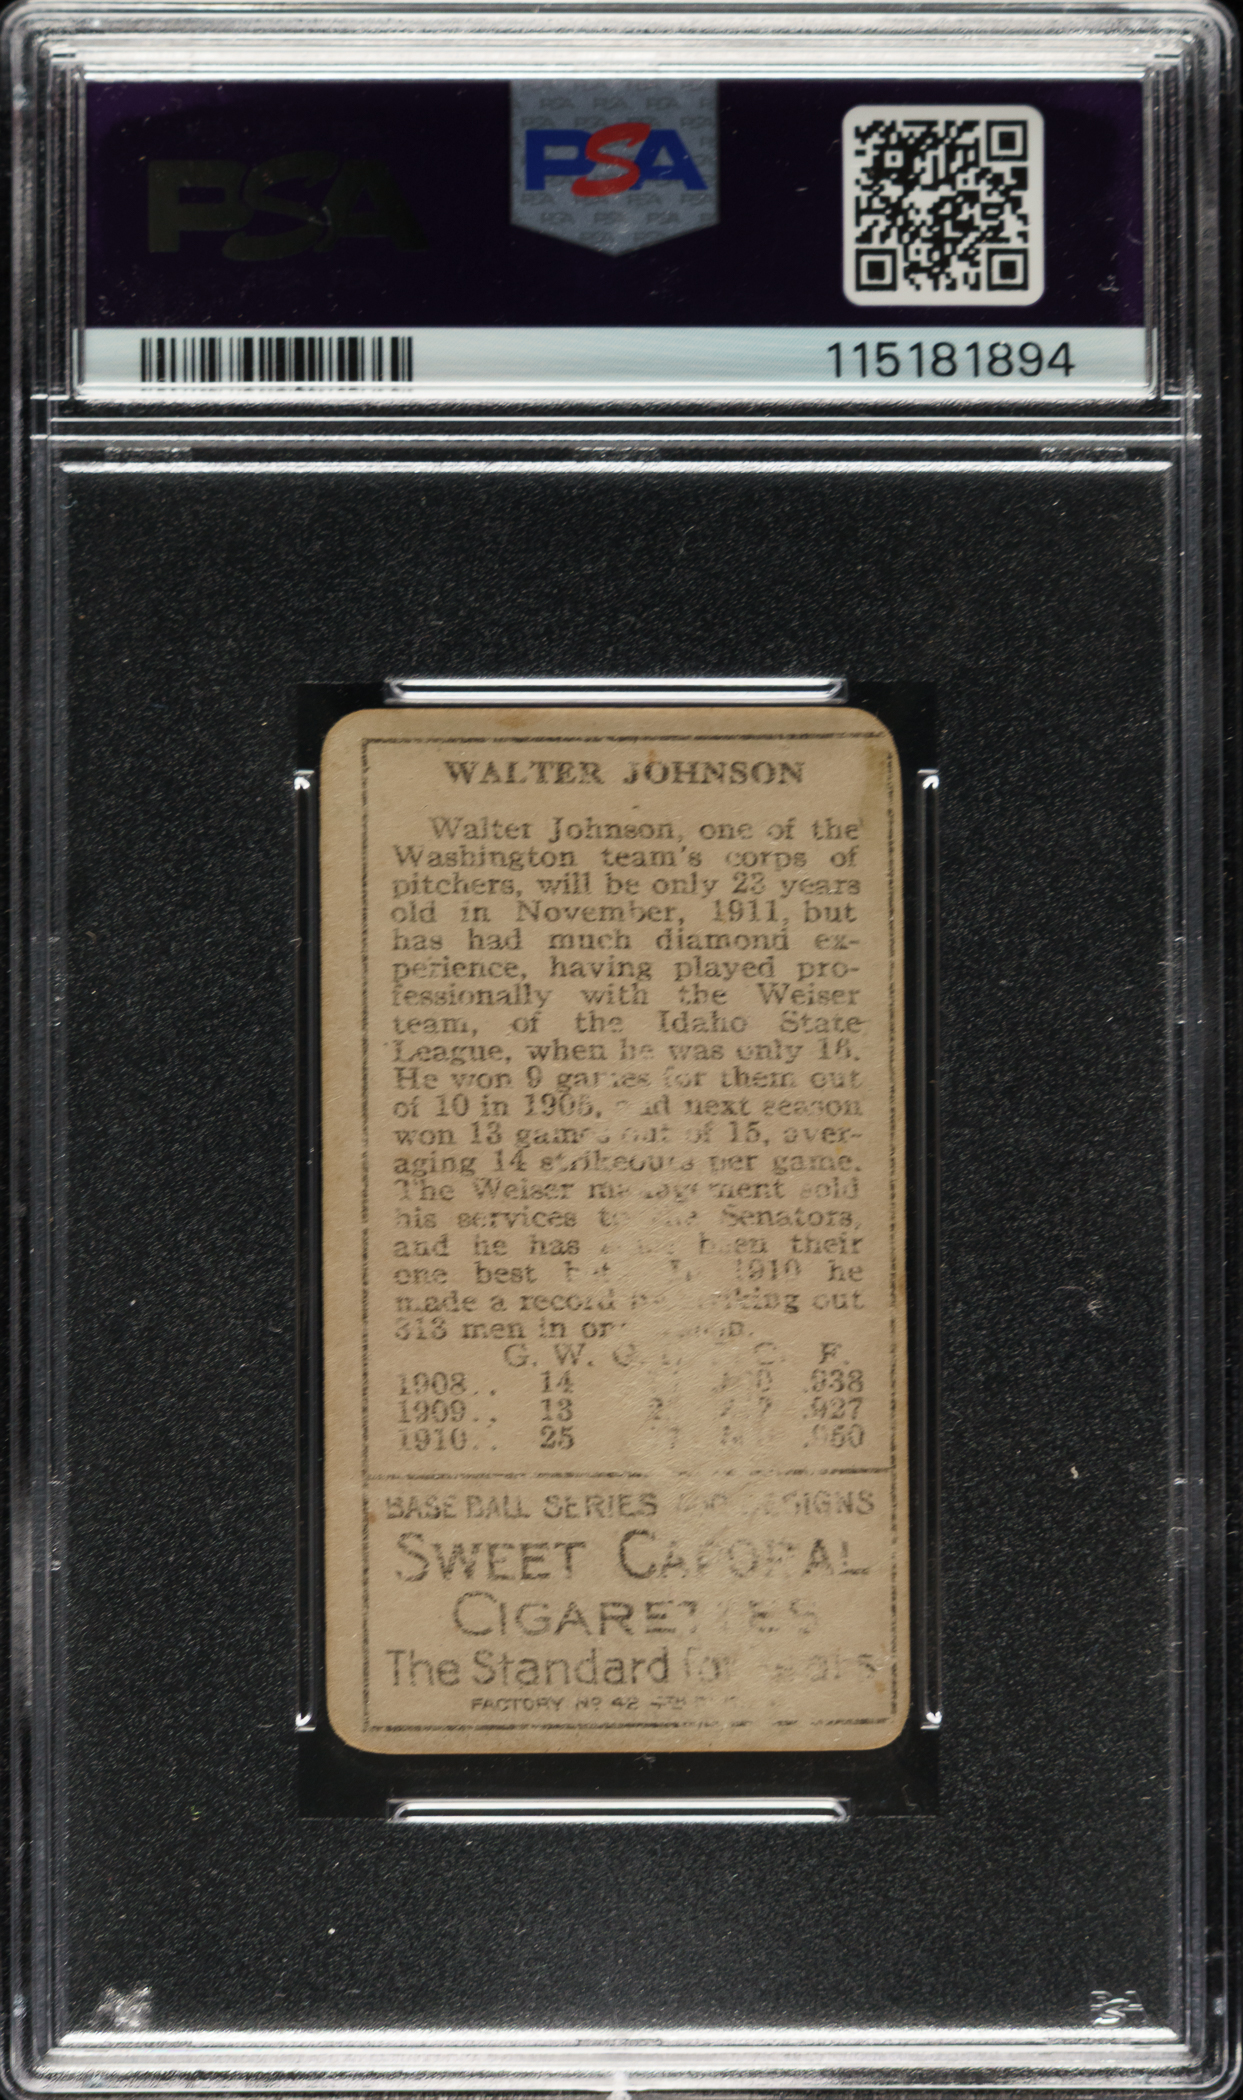 PSA
PSA
115181894
WALTER JOHNSON
Walter Johnson, one of the
Washington team's corps of
pitchers, will be only 23 years
old in November, 1911, but
has had much diamond ex-
perience, having played pro-
fessionally with the Weiser
team, of the Idaho State
League, when he was only 16.
He won 9 games for them out
of 10 in 1906, and next season
won 13 games out of 15, aver-
aging 14 strikeouts per game.
The Weiser management sold
his services to the Senators,
and he has been their
one best 1910 he
made a record out
313 men in
G. W.
1908.. 14 .938
1909.. 13 .927
1910.. 25
BASE BALL SERIES DESIGNS
SWEET CAPORAL
CIGARETTES
The Standard for
FACTORY No 42